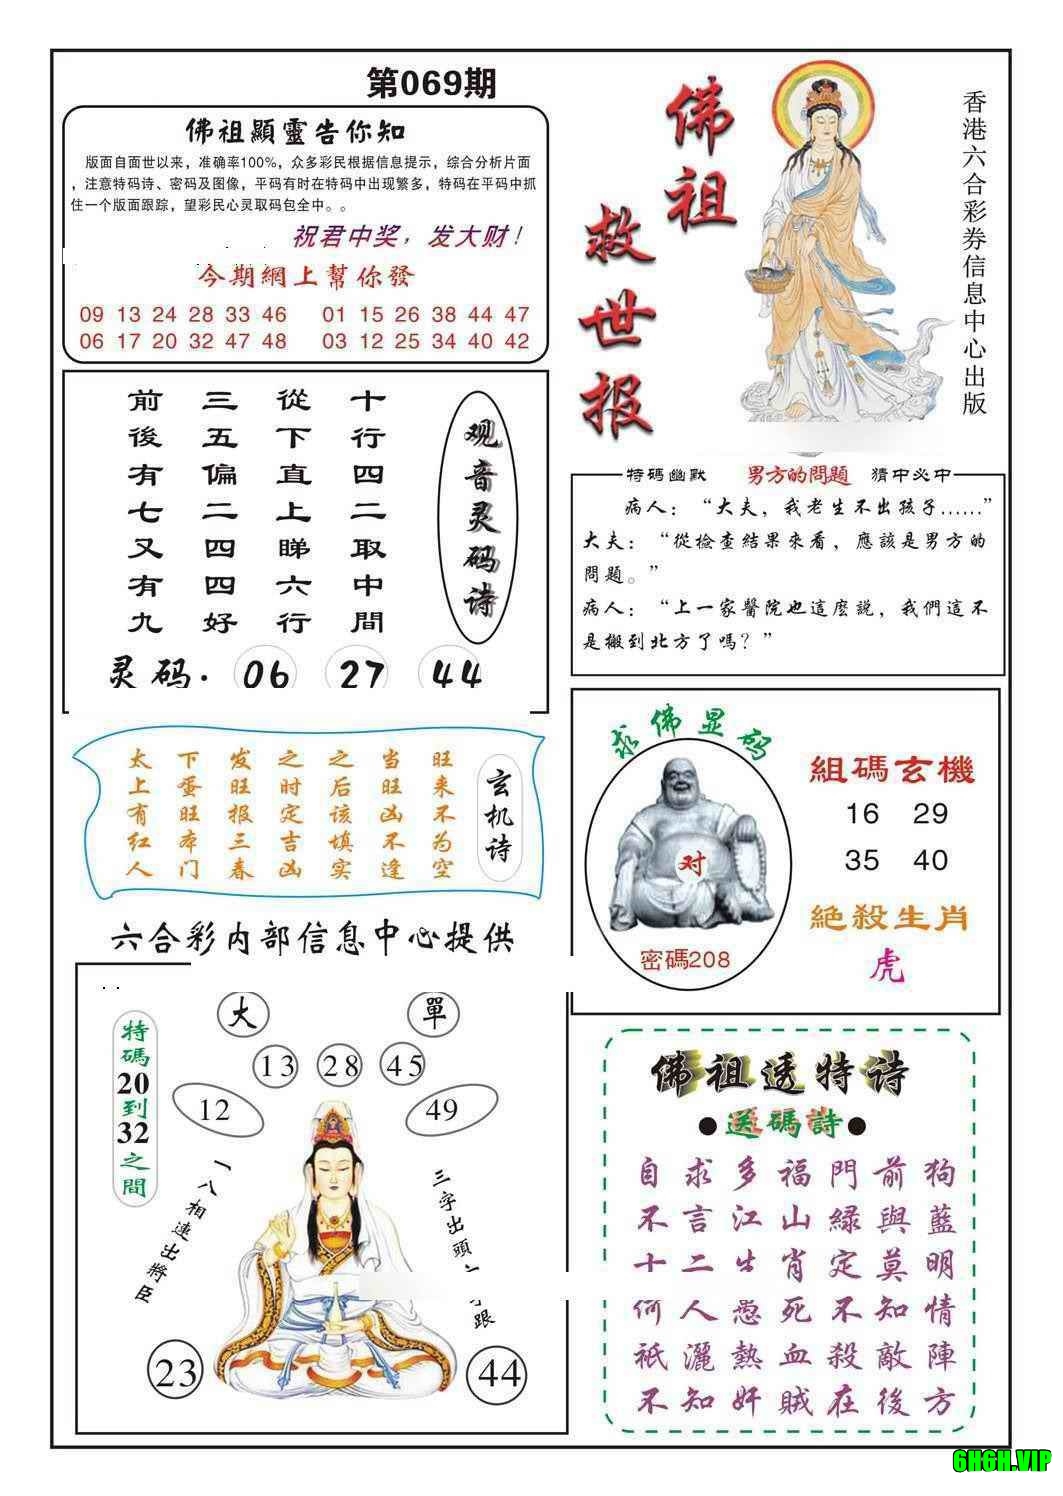 第069期
佛祖顯靈告你知
版面自面世以来，准确率100%，众多彩民根据信息提示，综合分析片面
，注意特码诗、密码及图像，平码有时在特码中出现繁多，特码在平码中抓
住一个版面跟踪，望彩民心灵取码包全中。。
祝君中奖，发大财！
今期網上幫你發
09 13 24 28 33 46 01 15 26 38 44 47
06 17 20 32 47 48 03 12 25 34 40 42
佛祖
救世报
香港六合彩券信息中心出版
观音灵码诗
十行四二取中間
從下直上睇六行
三五偏二四四好
前後有七又有九
灵码. 06 27 44
特碼幽默 男方的問題 猜中必中
病人：“大夫，我老生不出孩子......”
大夫：“從檢查結果來看，應該是男方的
問題。”
病人：“上一家醫院也這麽説，我們這不
是搬到北方了嗎？”
玄机诗
旺来不为空
当旺凶不逢
之后该填实
之时定吉凶
发旺报三春
下蛋旺本门
太上有红人
求佛显码
对
密碼208
組碼玄機
16 29
35 40
絕殺生肖
虎
六合彩内部信息中心提供
特碼20到32之間
大 單
13 28 45
12 49
一八相連出將臣
三字出頭
跟
23 44
佛祖透特诗
●送碼詩●
自求多福門前狗
不言江山綠與藍
十二生肖定莫明
何人愚死不知情
祇灑熱血殺敵陣
不知奸賊在後方
6H6H.VIP